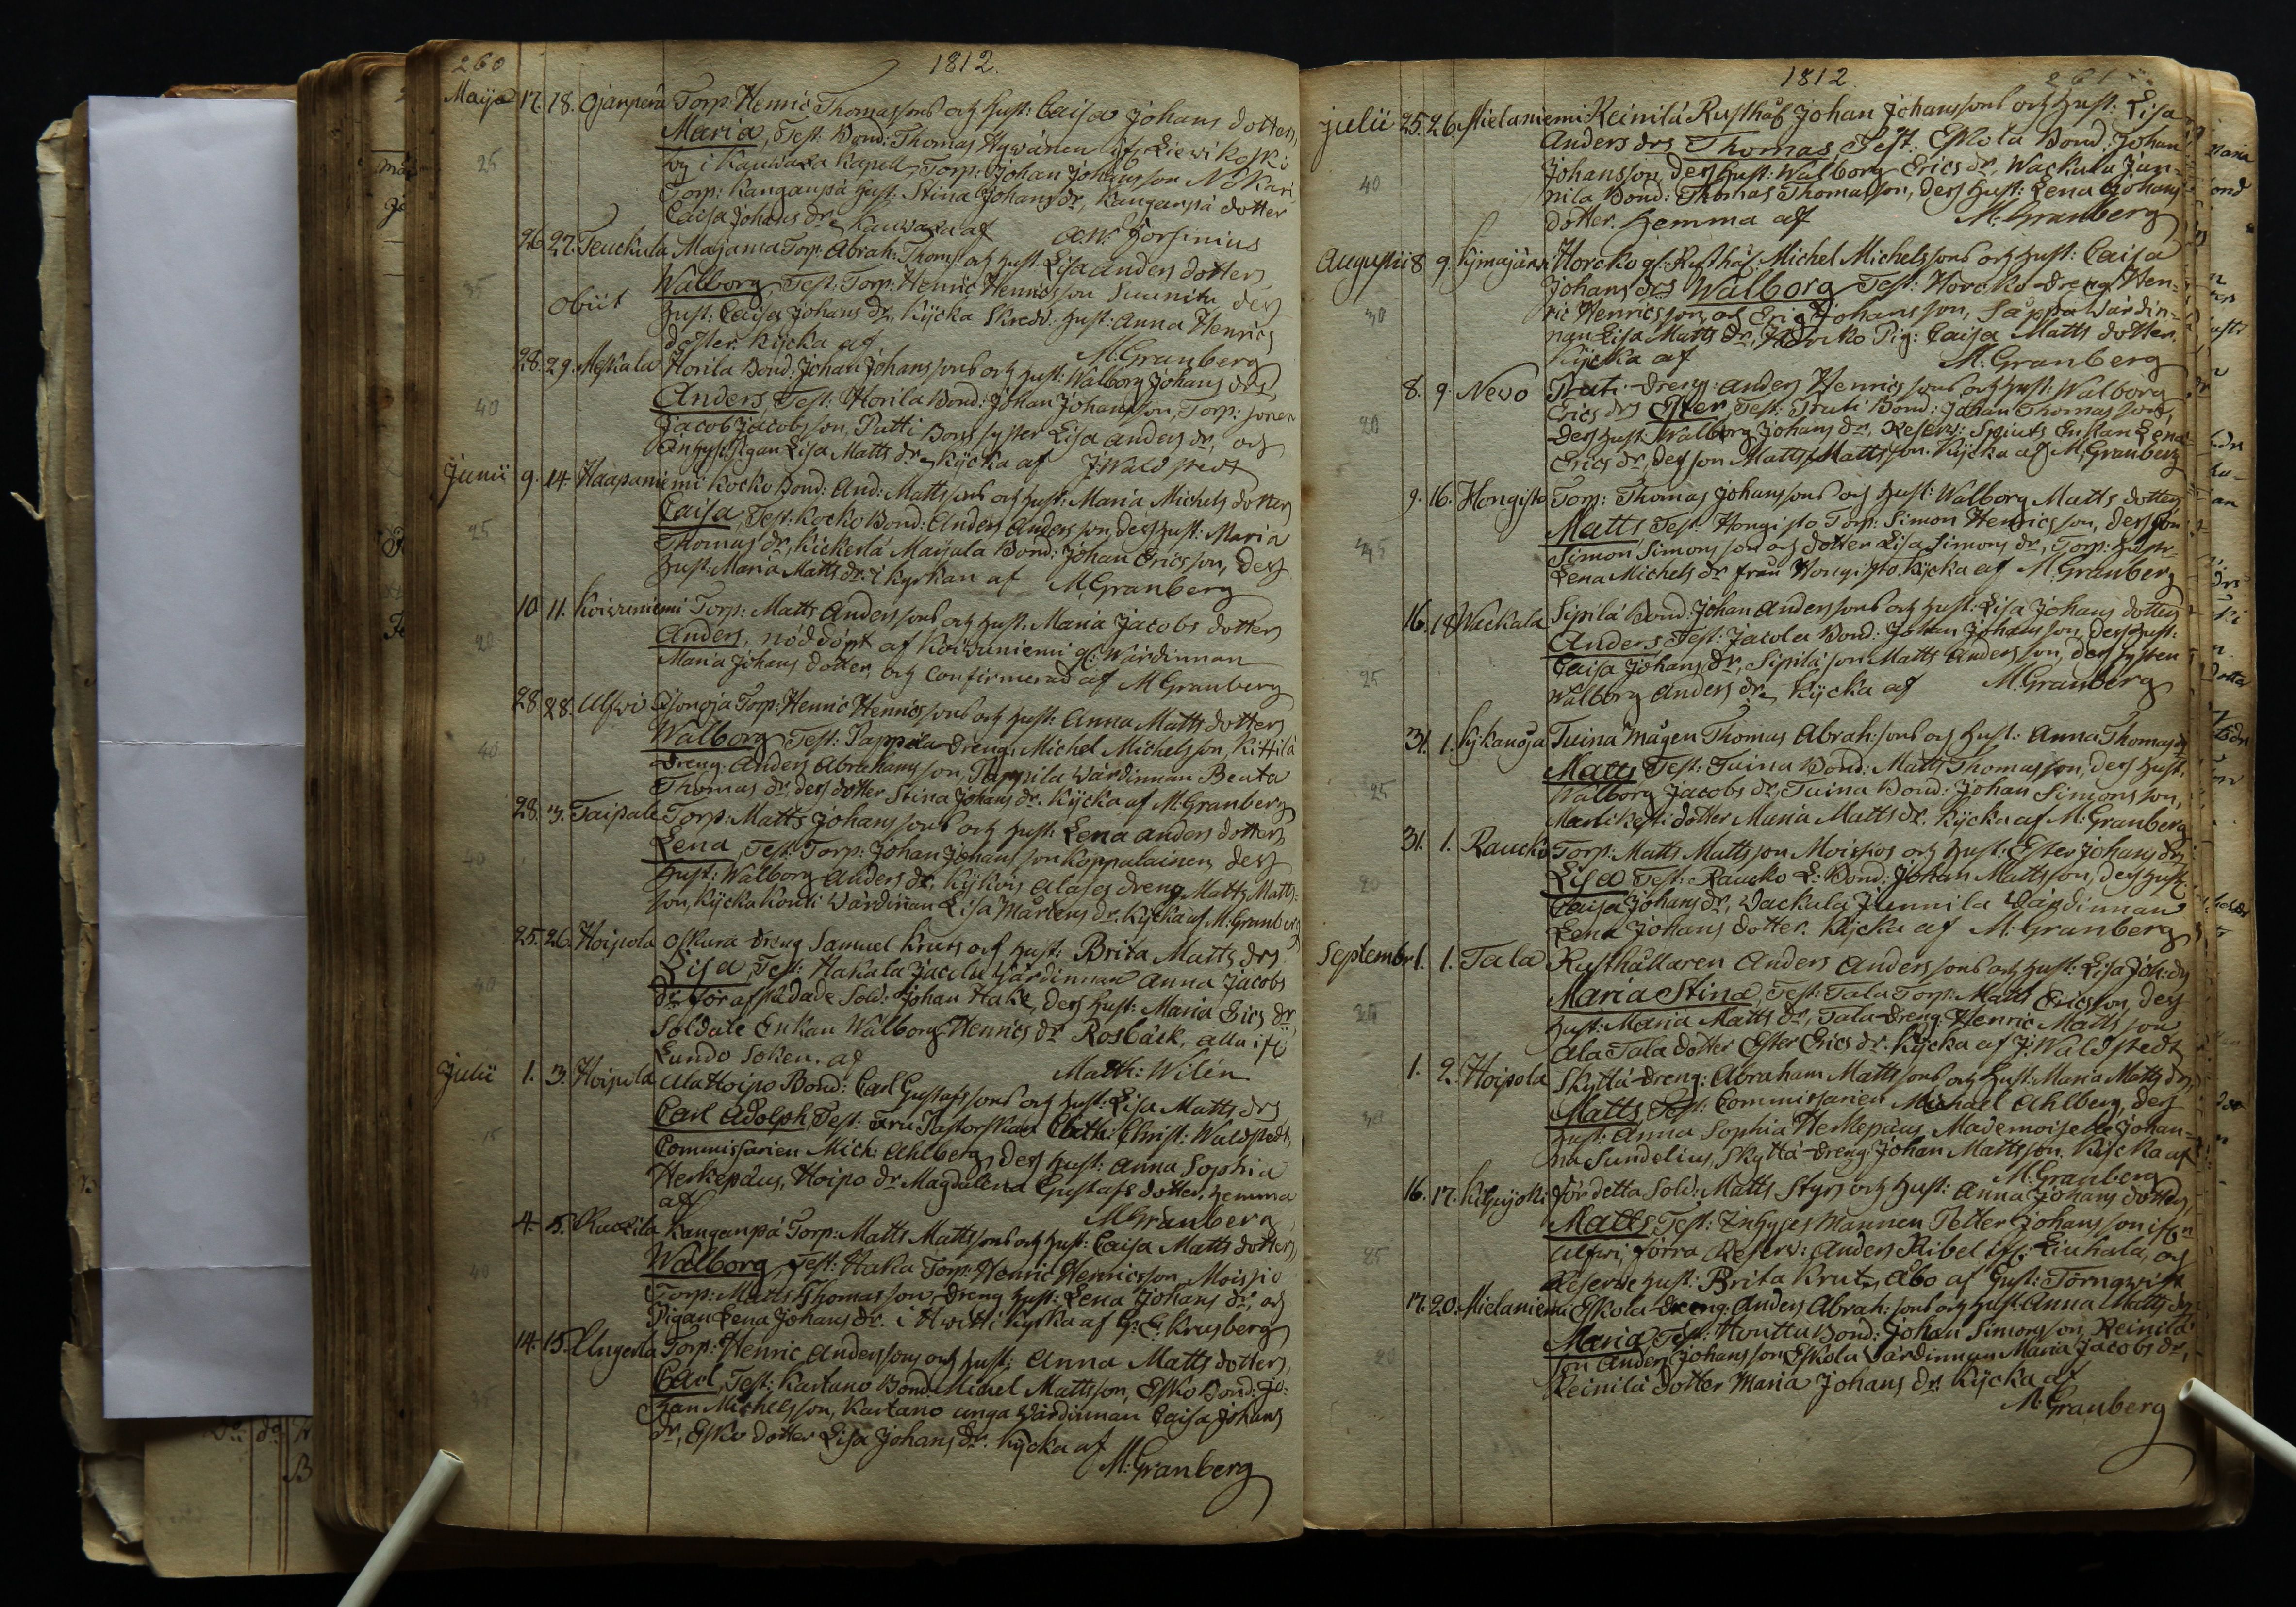 260
1812.
Maije 17. 18. Ojanperä Torp: Henric Thomassons och hust: Caisa Johans dotters
Maria, Test: Bond: Thomas Hywänen ifr Liewikoski
by i Kauwaxa Kapell, Torp: Johan Johansson Nokari
25
Torp: Kanganpä hust: Stina Johans dr, Kanganpä dotter
Caisa Johans dr Kauwaxa af A.W. Forsinius
26. 27. Teuckula Majamaa Torp: Abrah: Thoms: och hust. Lisa anders dotters
35
Obiit
Walborg, Test: Torp: Henric Henricsson Suunitu, des
hust: Caisa Johans dr, Kÿcka Skredd: hust: Anna Henrics
dotter. Kÿcka af M. Granberg
28. 29. Meskala Horila Bond: Johan Johanssons och hust: Walborg Johans drs
40
Anders, Test: Horila Bond: Johan Johansson, Torp: sonen
Jacob Jacobsson, Putti Bonds syster Lisa anders dr, och
Inhyses pigan Lisa Matts dr. Kÿcka af J. Waldstedt
Junii 9. 14. Haapaniemi Kocko Bond: And: Mattssons och hust: Maria Michels dotters
25
Caisa, Test: Kocko Bond: Anders Andersson, des hust: Maria
Thomas dr, Kickerlä Maÿala Bond: Johan Ericsson, des
hust: Maria Matts dr. i kyrkan af M. Granberg
10. 11. Koiwuniemi Torp: Matts Anderssons och hust. Maria Jacobs dotters
20
Anders, nöddöpt af Koiwuniemi gl: Wärdinnan
Maria Johans dotter, och Confirmerad af M Granberg
28. 28. Ulfwi Torp: Henric Henricssons och hust: Anna Matts dotters
40
Walborg, Test: Pappila dreng: Michel Michelsson, Kittilä
dreng: Anders Abrahamsson, Pappila Wärdinnan Beata
Thomas dr, des dotter Stina Johans dr. Kÿcka af M. Granberg
28. 3. Taipale Torp: Matts Johanssons och hust: Lena anders dotters
40
Lena, Test: Torp: Johan Johansson Koppalainen, des
hust: Walborg Anders dr, Kÿköis Alases dreng Matts Matts-
son, Kÿcka Konti Wärdinnan Lisa Mårtens dr. Kÿcka af M. Granberg
25. 26. Hoipola Oskura dreng Samuel Kruts och hust: Brita Matts drs
40
Lisa, Test: Hakala Jacola Wärdinnan Anna Jacobs
dr, för afskedade Sold: Johan Hake, des hust: Maria Erics dr,
Soldate Enkan Walborg Henrics dr Rosbäck, alla ifr
Lundo Soken. af Math: Wilén
Julii 1. 3. Hoipola Ala Hoipo Bond: Carl Gustafssons och hust: Lisa Matts drs
15
Carl Adolph, Test: Fru Pastorskan Cath: Christ: Waldstedt,
Commissarien Mich: Ahlberg, des hust: Anna Sophia
Herkepæus, Hoipo dr Magdalena Gustafs dotter, hemma
af M Granberg
4. 5. Kanganpä Torp: Matts Mattssons och hust: Caisa Matts dotters
40
Walborg, Test: Haka Torp: Henric Henricsson, Moisio
Torp: Matts Thomasson, dreng hust: Lena Johans dr, och
Pigan Lena Johans dr. i Hwitti kyrka af G. E. Krusberg
14. 15. Ungerla Torp: Henric Anderssons och hust: Anna Matts dotters,
Carl, Test: Kartano Bond: Michel Mattsson, Esko Bond: Jo-
han Michelsson, Kartano unga Wärdinnan Caisa Johans
dr, Esko dotter Lisa Johans dr. Kÿcka af
M. Granberg
1812
261
Julii 25. 26. Mielaniemi Keinilä Rusthåll: Johan Johanssons och hust. Lisa
Anders drs Thomas, Test: Eskola Bond: Johan
40
Johansson, des hust: Walborg Erics dr, Wackala Jun-
nila Bond: Thomas Thomasson, des hust: Lena Johans
dotter. hemma af M. Granberg
Augusti 8. 9. Horcko gl: Rusthål: Michel Michelssons och hust: Caisa
Johans drs Walborg, Test: Horcko dreng: Hen-
30
ric Henricsson, och Eric Johansson, Säppä Wärdin-
nan Lisa Matts dr, Horcko Pig: Caisa Matts dotter.
Kÿcka af M. Granberg
8. 9. Nevo Pruti dreng: anders Henricssons och hust: Walborg
20
Erics drs Ester, Test: Pruti Bond: Johan Thomasson,
des hust: Walborg Johans dr, Reserv: Spiuts Enkan Lena
Erics dr, des son Matts Mattsson. Kÿcka af M: Granberg
9. 16. Hongisto Torp: Thomas Johanssons och hust: Walborg Matts dotters
Matts, Test: Hongisto Torp: Simon Henricsson, des son
45
Simon Simonsson och dotter Lisa Simons dr, Torp: hustr-
Lena Michels dr från Hongisto. Kÿcka af M. Granberg
16. 18. Wackala Sipilä Bond: Johan Anderssons och hust: Lisa Johans dotters
Anders, Test: Jacola Bond: Johan Johansson, des hust:
25
Caisa Johans dr, Sipilä son Matts Andersson, des syster
Walborg anders dr. Kÿcka af M. Granberg
31. 1. Kÿkänoja Tuina mågen Thomas Abrah:sons och hust: Anna Thomas dr
Matts, Test: Tuina Bond: Matts Thomasson, des hust:
25
Walborg Jacobs dr, Tuina Bond: Johan Simonsson,
dotter Maria Matts dr. Kÿcka af M. Granberg
31. 1. Raucko Torp: Matts Mattsson Moisios och hust: Ester Johans drs
20
Lisa, Test: Raucko L: Bond: Johan Mattsson, des hust:
Caisa Johans dr, Wackala Junnila Wärdinnan
Lena Johans dotter. Kÿcka af M. Granberg
Septembr 1. 1. Tala Rusthållaren Anders Anderssons och hust: Lisa Joh: drs
25
Maria Stina, Test: Tala Torp: Matts Ericsson, des
hust: Maria Matts dr, Tala dreng: Henric Mattsson
Ala Tala dotter Ester Erics dr. Kÿcka af J. Waldstedt
1. 2. Hoipola Skÿttä dreng: Abraham Mattssons och hust: Maria Matts drs
30
Matts, Test: Commissarien Michael Ahlberg, des
hust: Anna Sophia Herkepæus, Mademoiselle Johan-
na Sundelius, Skyttä dreng: Johan Mattsson. Kÿcka af
M. Granberg
16. 17. Kilpijoki för detta Sold: Matts Styrs och hust: Anna Johans dotters,
Matts, Test: Inhyses Mannen Petter Johansson ifrn
25
Ulfwi, förra Reserv: Anders Ribel ifr: Liuhala, och
Reserve hust: Brita Krut, Åbo af Gust: Törnqwist
17. 20. Mielaniemi Eskola dreng: Anders Abrah:sons och hust: Anna Matts drs
Maria, Test: Houttu Bond: Johan Simonsson, Keinilä
20
son Anders Johansson, Eskola Wärdinnan Maria Jacobs dr,
Keinilä dotter Maria Johans dr. Kÿcka af
M. Granberg